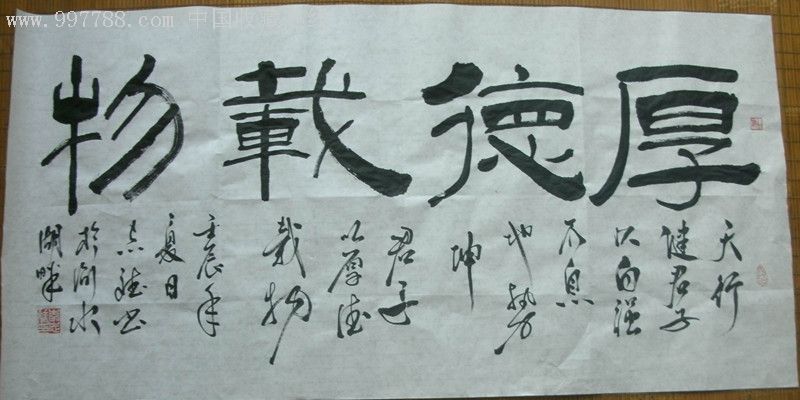 www.997788.com 中国收藏热线
厚德載物
天行
健君子
以自强
不息
地势
坤
君子
以厚德
载物
壬辰年
夏日
书
於
水
湖畔